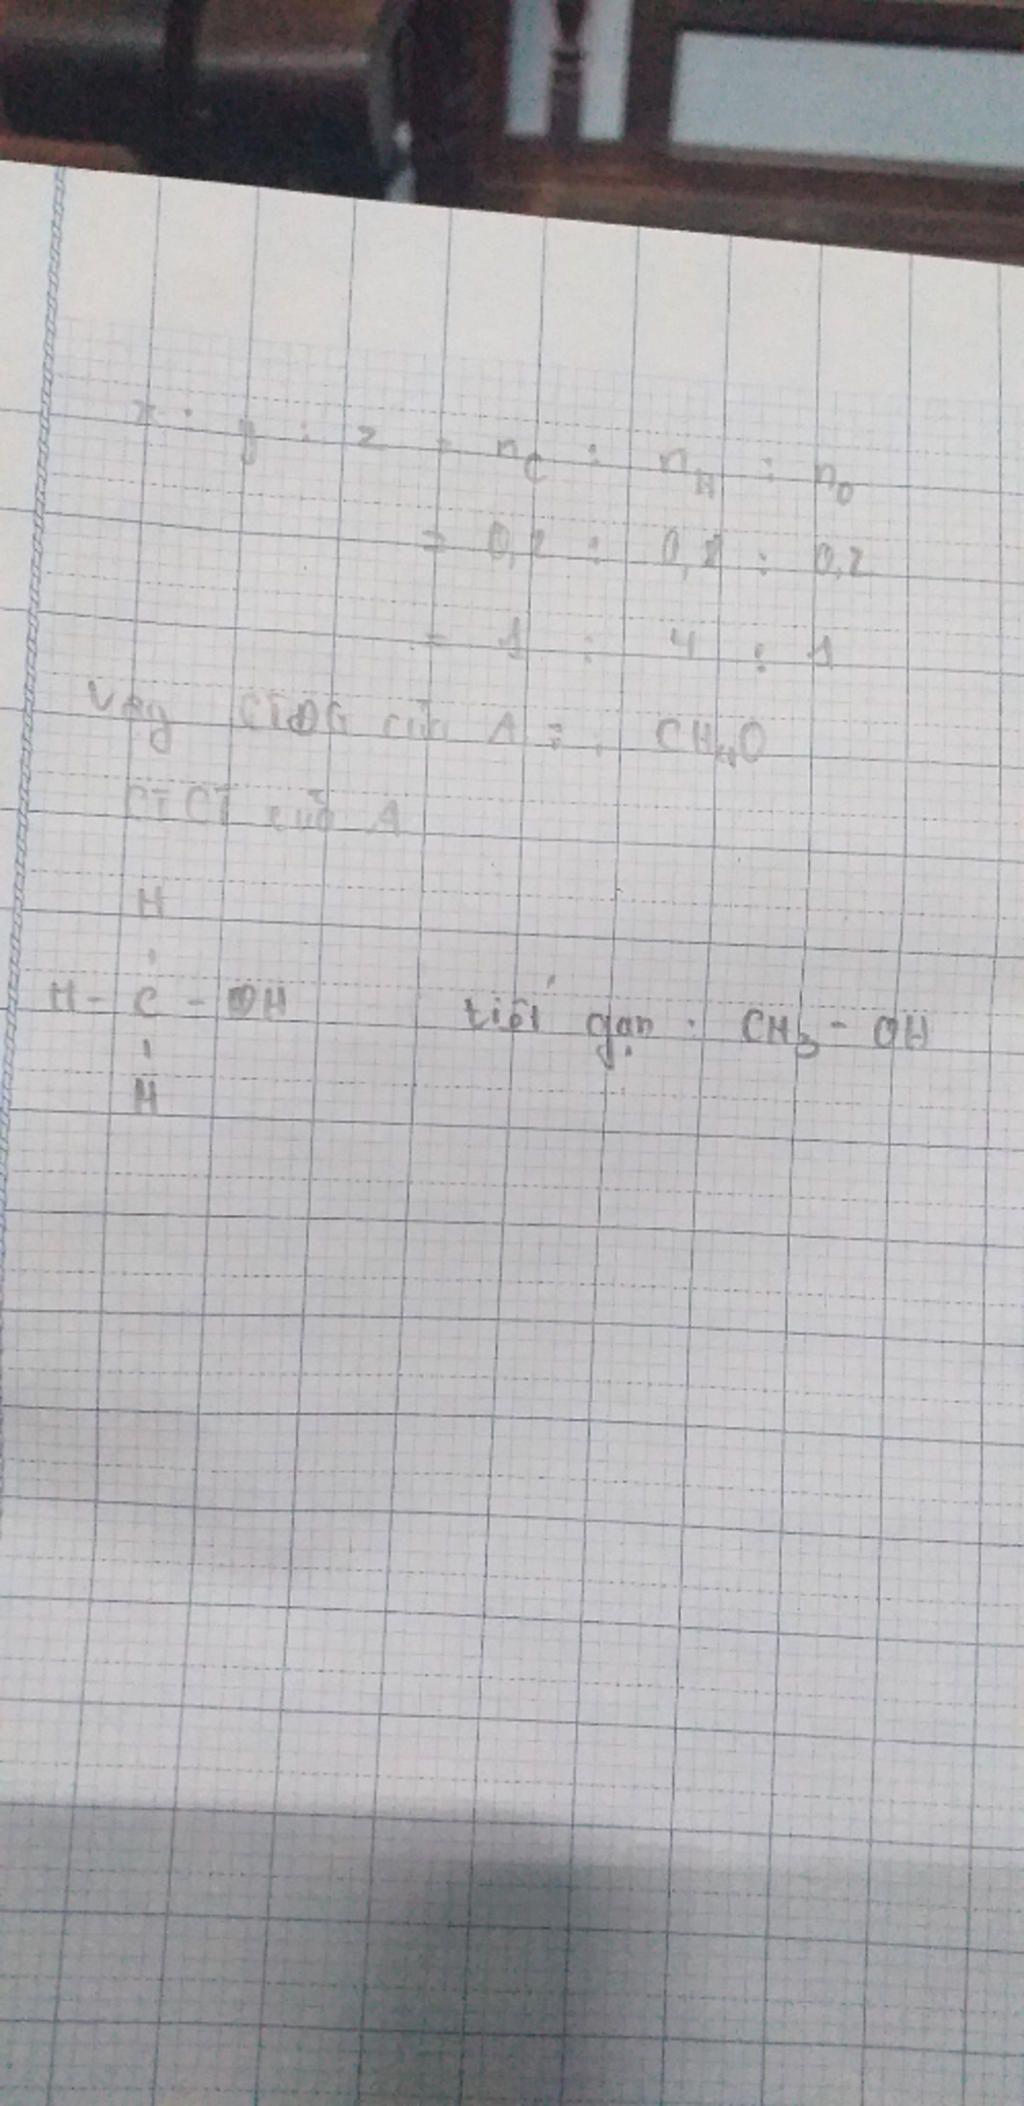 x : y : z = nC : nH : nO
= 0,2 : 0,8 : 0,2
= 1 : 4 : 1
Vậy CTĐG của A : CH4O
CTCT của A
H
H - C - OH viết gọn : CH3 - OH
H